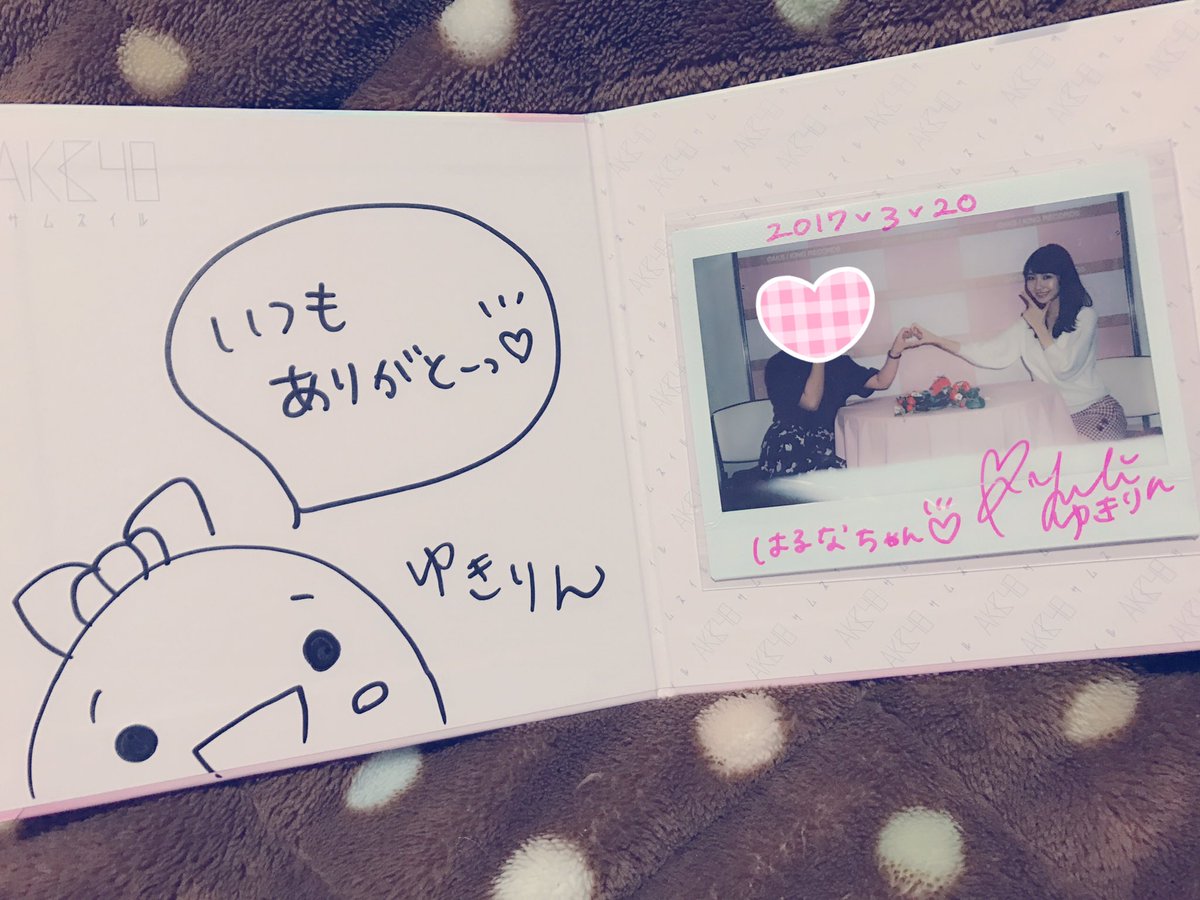 AKB48
サムネイル
いつも
ありがとーっ♡
ゆきりん
2017.3.20
はるなちゃん♡
ゆきりん